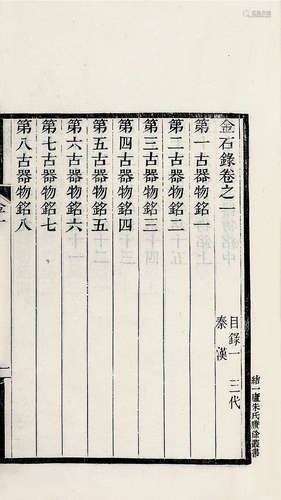 金石錄卷之一
目錄一 三代
秦 漢
第一古器物銘一
第二古器物銘二
第三古器物銘三
第四古器物銘四
第五古器物銘五
第六古器物銘六
第七古器物銘七
第八古器物銘八
結一廬朱氏賸餘叢書